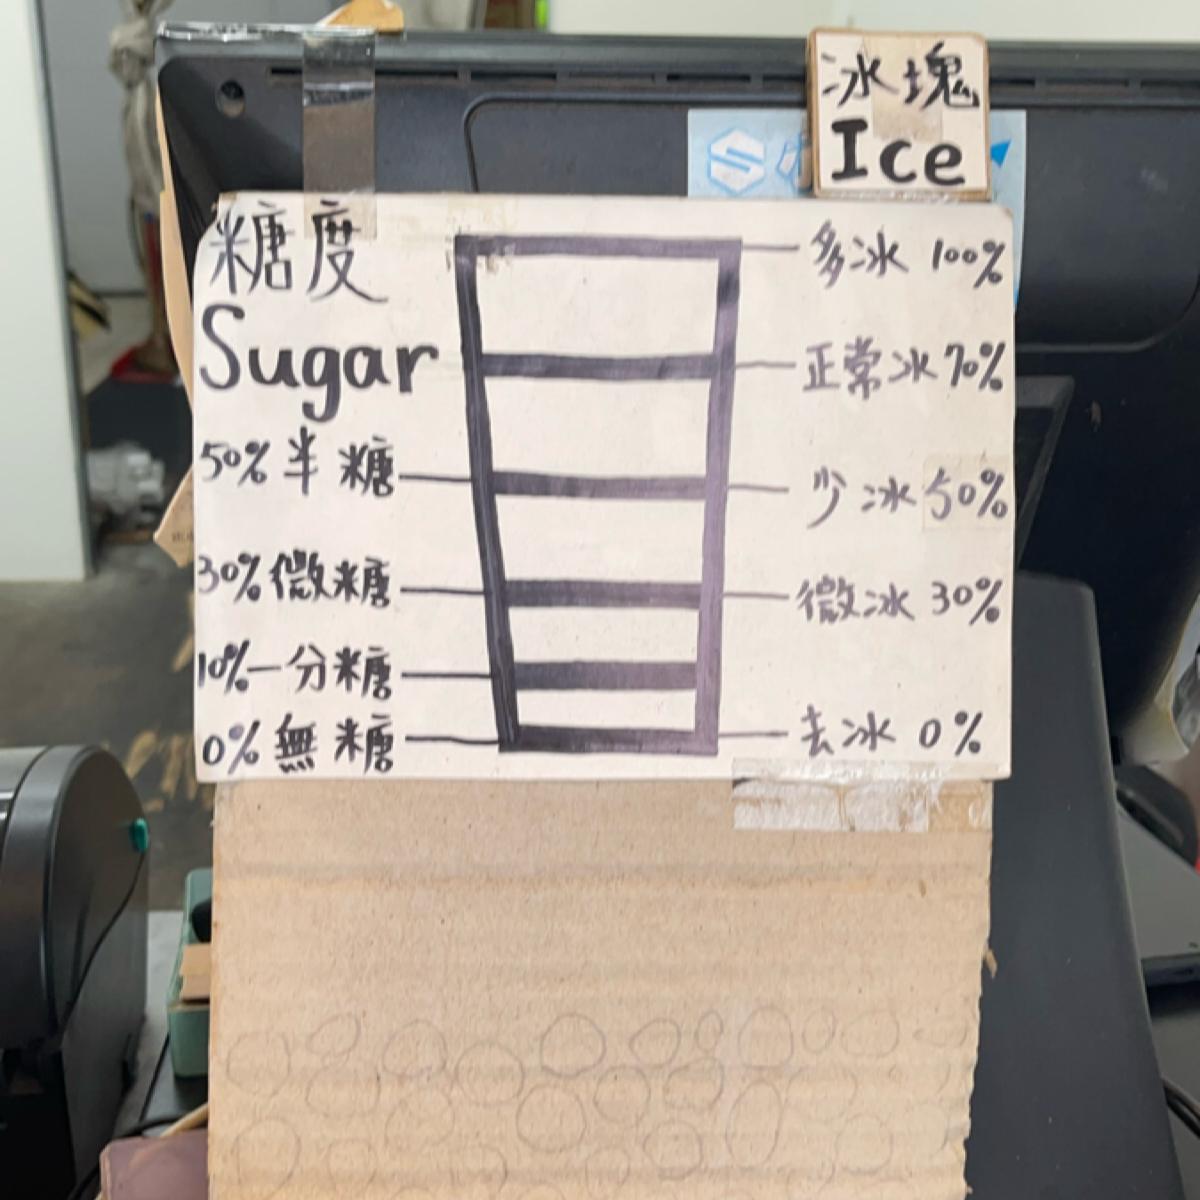 冰塊
Ice
糖度
Sugar
50% 半糖
30% 微糖
10% 一分糖
0% 無糖
多冰 100%
正常冰 70%
少冰 50%
微冰 30%
去冰 0%